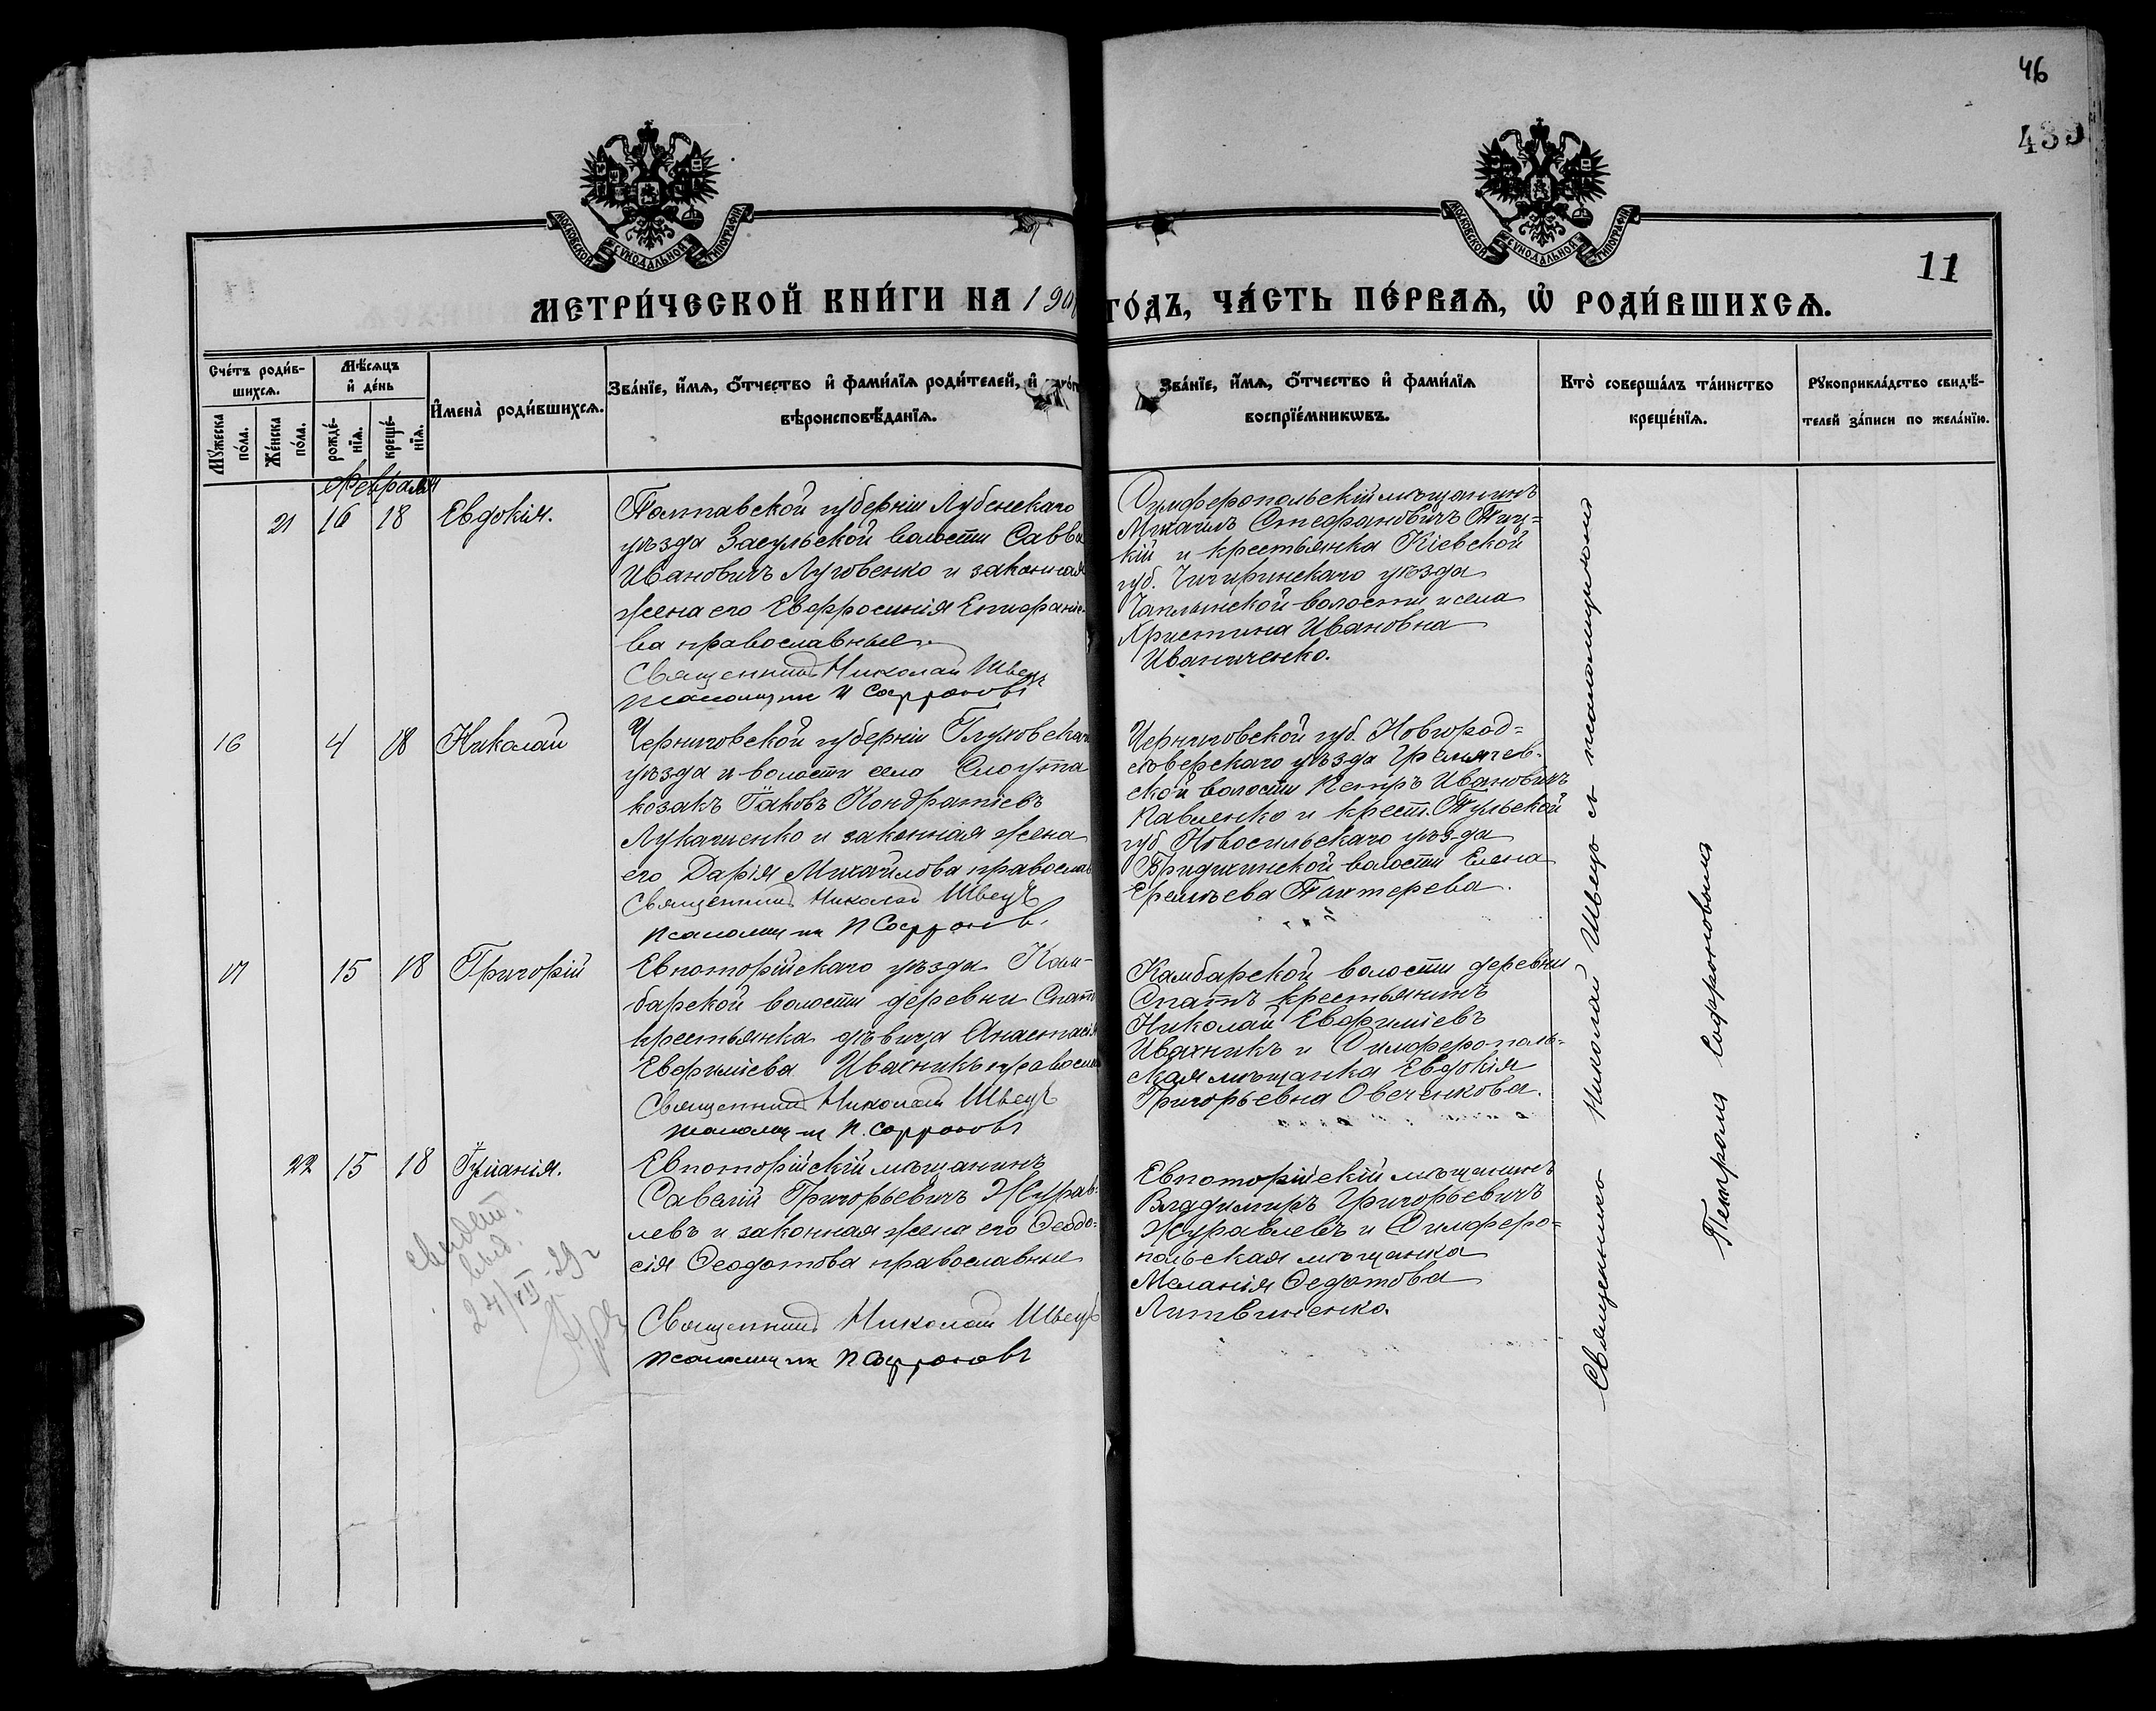 46
439
11
МОСКОВСКОЙ СѴНОДАЛЬНОЙ ТИПОГРАФІИ
МОСКОВСКОЙ СѴНОДАЛЬНОЙ ТИПОГРАФІИ
МЕТРИ́ЧЕСКОЙ КНИ́ГИ НА 190
ГО́ДЪ, ЧА́СТЬ ПЕ́РВАѦ, Ѡ҆ РОДИ́ВШИХСѦ.
Счéтъ роди́в-
шихсѧ.
Мꙋ́жеска
по́ла.
Же́нска
по́ла.
Мѣ́сѧцъ
и҆ де́нь
рожде́-
нїѧ.
креще́-
нїѧ.
И҆мена̀ роди́вшихсѧ.
Зва́нїе, и҆́мѧ, ѻ҆́тчество и҆ фами́лїѧ роди́телей, и҆
вѣроисповѣ́данїѧ.
Зва́нїе, и҆́мѧ, ѻ҆́тчество и҆ фами́лїѧ
воспрїе́мникѡвъ.
Кто̀ соверша́лъ та́инство
креще́нїѧ.
Рꙋкоприкла́дство свидѣ́-
телей за́писи по жела́нїю.
Февраля
21 16 18 Евдокія.
Полтавской губерніи Лубенскаго
уѣзда Засульской волости Савва
Ивановичъ Луговенко и законная
жена его Евфросинія Епифаніе-
ва православные.
Священникъ Николай Швецъ
псаломщикъ П Софроновъ
Симферопольскій мѣщанинъ
Михаилъ Стефановичъ
кій и крестьянка Кіевской
губ. Чигиринскаго уѣзда
Чаплинской волости и села
Христина Ивановна
Иваниченко.
16 4 18 Николай
Черниговской губерніи Глуховскаго
уѣзда и волости села Слоута
козакъ Іаковъ Кондратіевъ
Лукашенко и законная жена
его Дарія Михайлова православ
Священникъ Николай Швецъ
псаломщикъ П Софроновъ.
Черниговской губ. Новгород=
сѣверскаго уѣзда Гремячев-
ской волости Петръ Ивановичъ
Павленко и крест. Тульской
губ Новосильскаго уѣзда
волости Елена
Еремѣева Тихтерева.
17 15 18 Григорій
Евпаторійскаго уѣзда Кам-
барской волости деревни Спатъ
крестьянка дѣвица Анастасія
Евфиміева Ивахникъ православн
Священникъ Николай Швецъ
псаломщикъ П. Софроновъ
Камбарской волости деревни
Спатъ крестьянинъ
Николай Евфиміевъ
Ивахникъ и Симферополь-
ская мѣщанка Евдокія
Григорьевна Овеченкова.
22 15 18 Іуліанія.
Евпаторійскій мѣщанинъ
Савелій Григорьевичъ Журав-
левъ и законная жена его Ѳеодо-
сія Ѳеодотова православные
Священникъ Николай Швецъ
псаломщикъ П Софроновъ
Евпаторійскій мѣщанинъ
Владимиръ Григорьевичъ
Журавлевъ и Симферо=
польская мѣщанка
Меланія Ѳедотова
Литвиненко.
свидет.
выд.
24/XII-29 г
Священникъ Николай Швецъ съ псаломщикомъ
Петромъ Софроновымъ